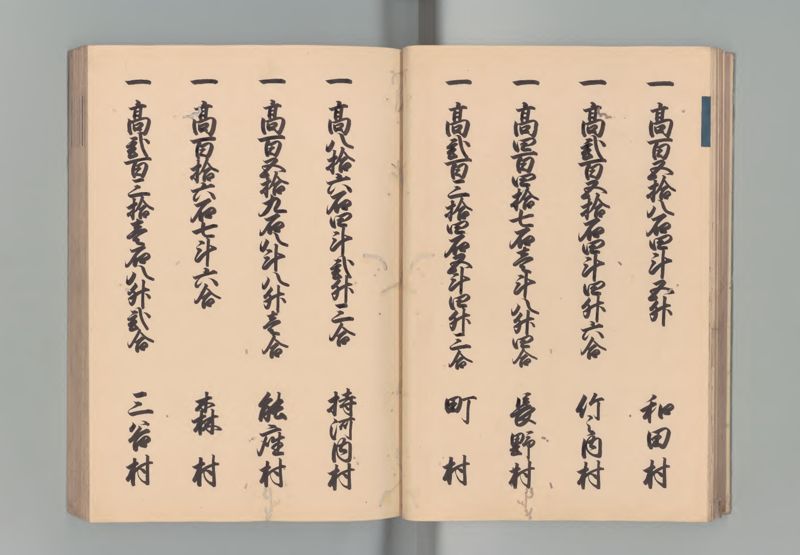 一 高百五拾八石四斗五升 和田村
一 高弐百五拾石四斗四升六合 竹角村
一 高四百四拾七石壱斗八升四合 長野村
一 高弐百三拾四石五斗四升三合 町村
一 高八拾六石四斗弐升三合 持河内村
一 高百五拾九石八斗八升壱合 能座村
一 高百拾六石七斗六合 森村
一 高弐百三拾壱石八升弐合 三谷村